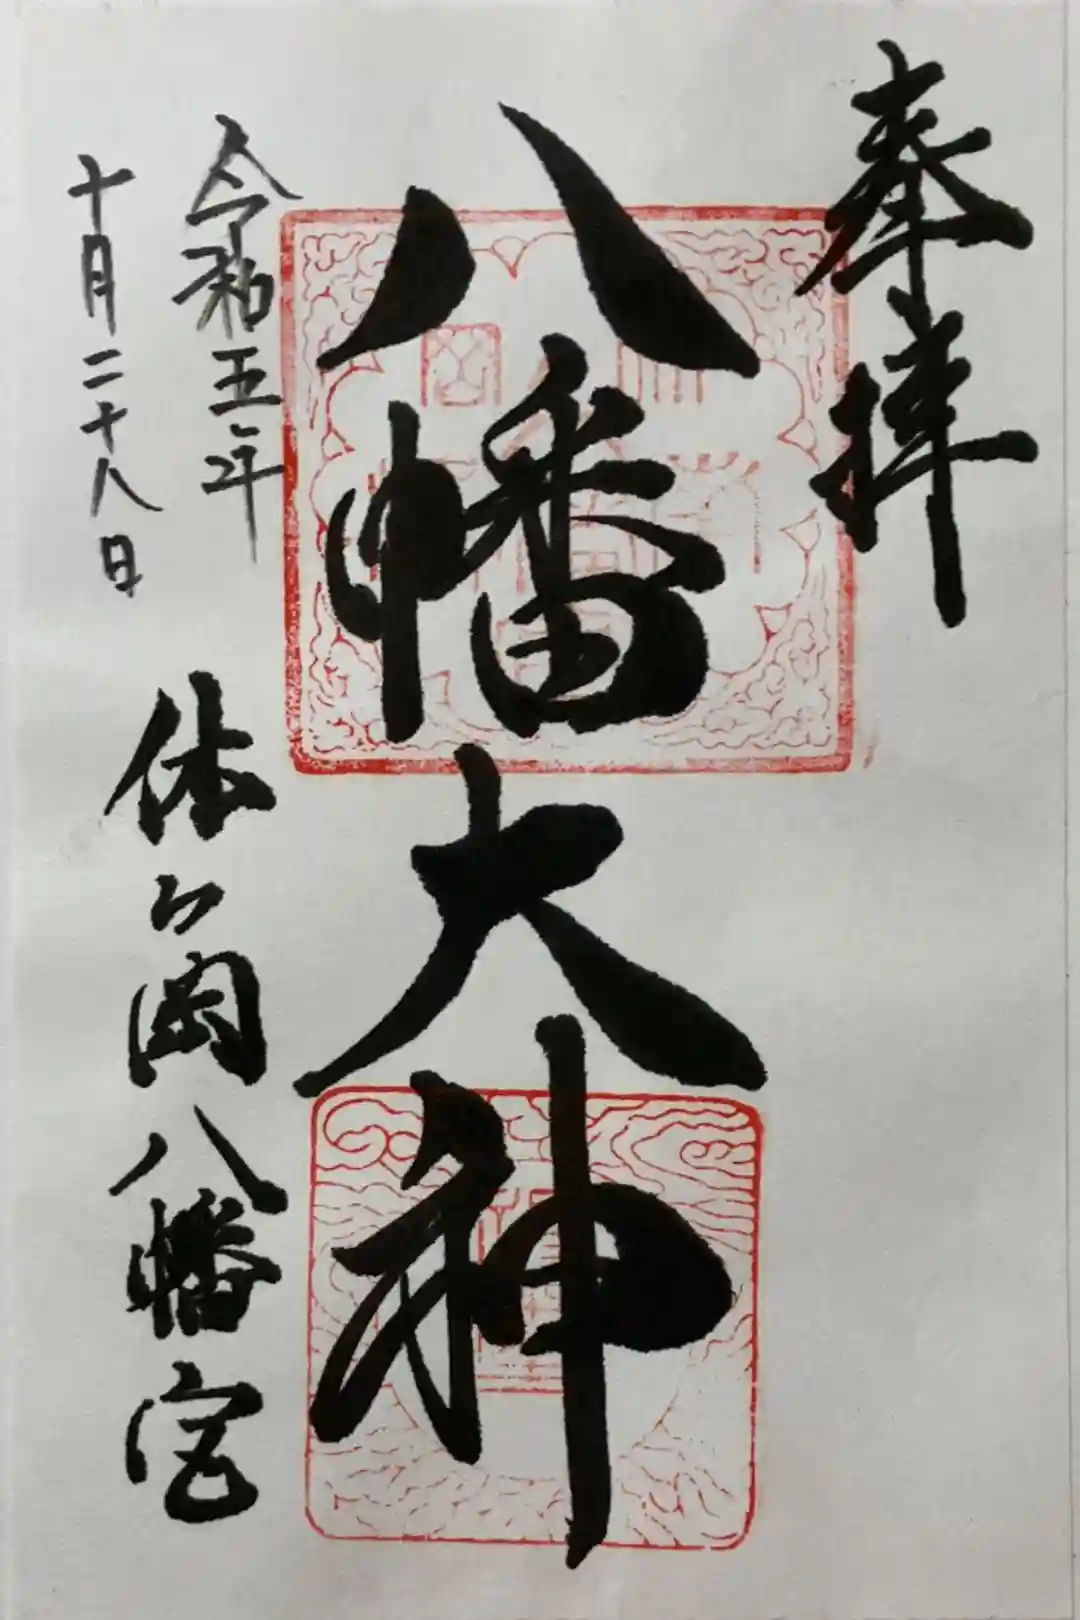 奉拝
八幡大神
令和五年
十月二十八日
休ヶ岡八幡宮